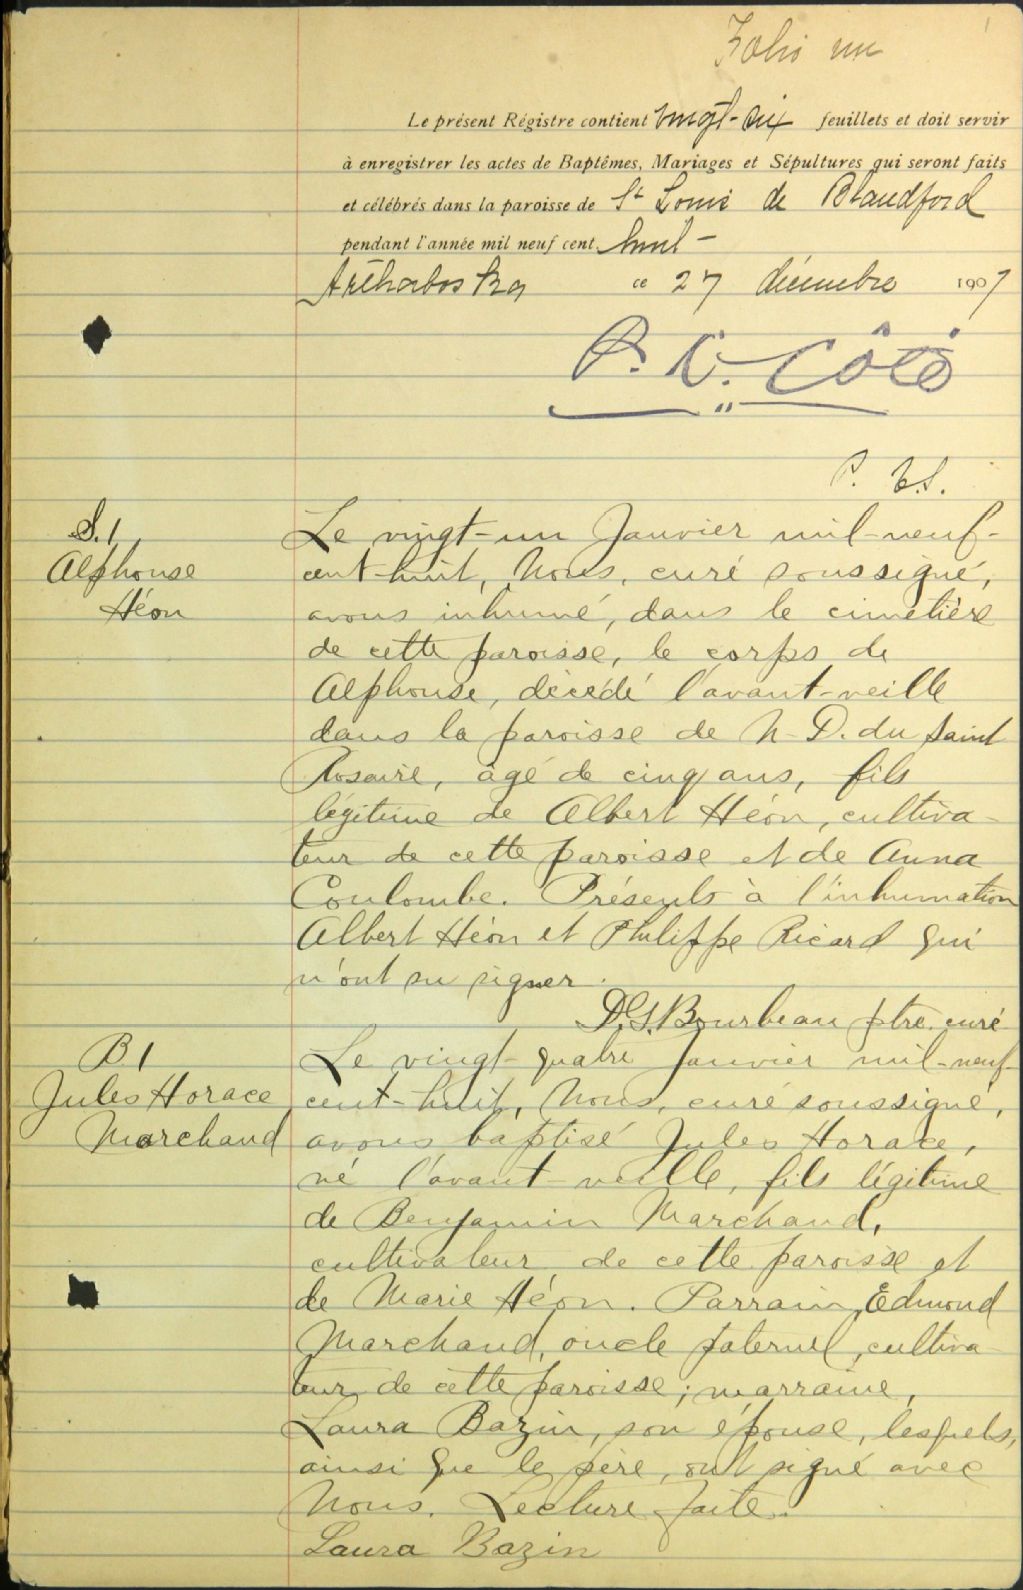 Folio un
Le présent Régistre contient vingt-six feuillets et doit servir
à enregistrer les actes de Baptêmes, Mariages et Sépultures qui seront faits
et célébrés dans la paroisse de St Louis de Blandford
pendant l'année mil neuf cent huit -
Arthabaska ce 27 décembre 1907
P. N. Côté
P. C.S.
S. 1
Alphonse
Héon
Le vingt-un Janvier mil-neuf-
cent-huit, Nous, curé soussigné,
avons inhumé, dans le cimetière
de cette paroisse, le corps de
Alphonse, décédé l'avant-veille
dans la paroisse de N-D. du saint
Rosaire, âgé de cinq ans, fils
légitime de Albert Héon, cultiva-
teur de cette paroisse et de Anna
Coulombe. Présents à l'inhumation
Albert Héon et Philippe Ricard qui
n'ont su signer.
Bourbeau ptre. curé
B 1
Jules Horace
Marchand
Le vingt-quatre Janvier mil-neuf-
cent-huit, Nous, curé soussigné,
avons baptisé Jules Horace,
né l'avant-veille, fils légitime
de Benjamin Marchand,
cultivateur de cette paroisse et
de Marie Héon. Parrain, Edmond
Marchand, oncle paternel, cultiva-
teur de cette paroisse; marraine,
Laura Bazin, son épouse, lesquels,
ainsi que le père, ont signé avec
Nous. Lecture faite.
Laura Bazin